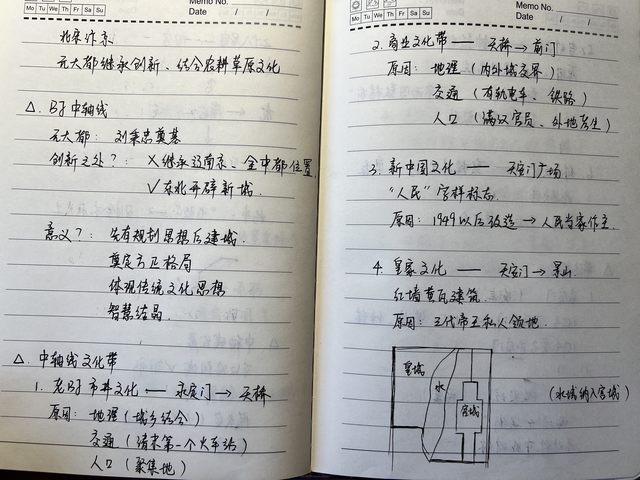 Mo Tu We Th Fr Sa Su
Memo No.
Date / /
北宋汴京
元大都继承创新、结合农耕草原文化
△. BJ中轴线
元大都: 刘秉忠奠基
创新之处?: ×继承辽南京、金中都位置
✓东北开辟新城.
意义?: 先有规划思想后建城.
奠定方正格局
体现传统文化思想
智慧结晶.
△. 中轴线文化带
1. 老BJ市井文化 — 永定门→天桥
原因: 地理(城乡结合)
交通(清末第一个火车站)
人口(聚集地)
Mo Tu We Th Fr Sa Su
Memo No.
Date / /
2. 商业文化带 — 天桥→前门
原因: 地理(内外城交界)
交通(有轨电车、铁路)
人口(满汉官员、外地考生)
3. 新中国文化 — 天安门广场
"人民"字样标志.
原因: 1949以后改造→人民当家作主.
4. 皇家文化 — 天安门→景山
红墙黄瓦建筑.
原因: 三代帝王私人领地.
皇城
水
宫城
(水域纳入宫城)